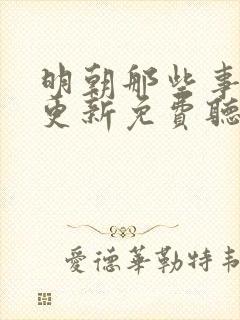 明朝那些事
更新免費聽
愛德華勒特韋